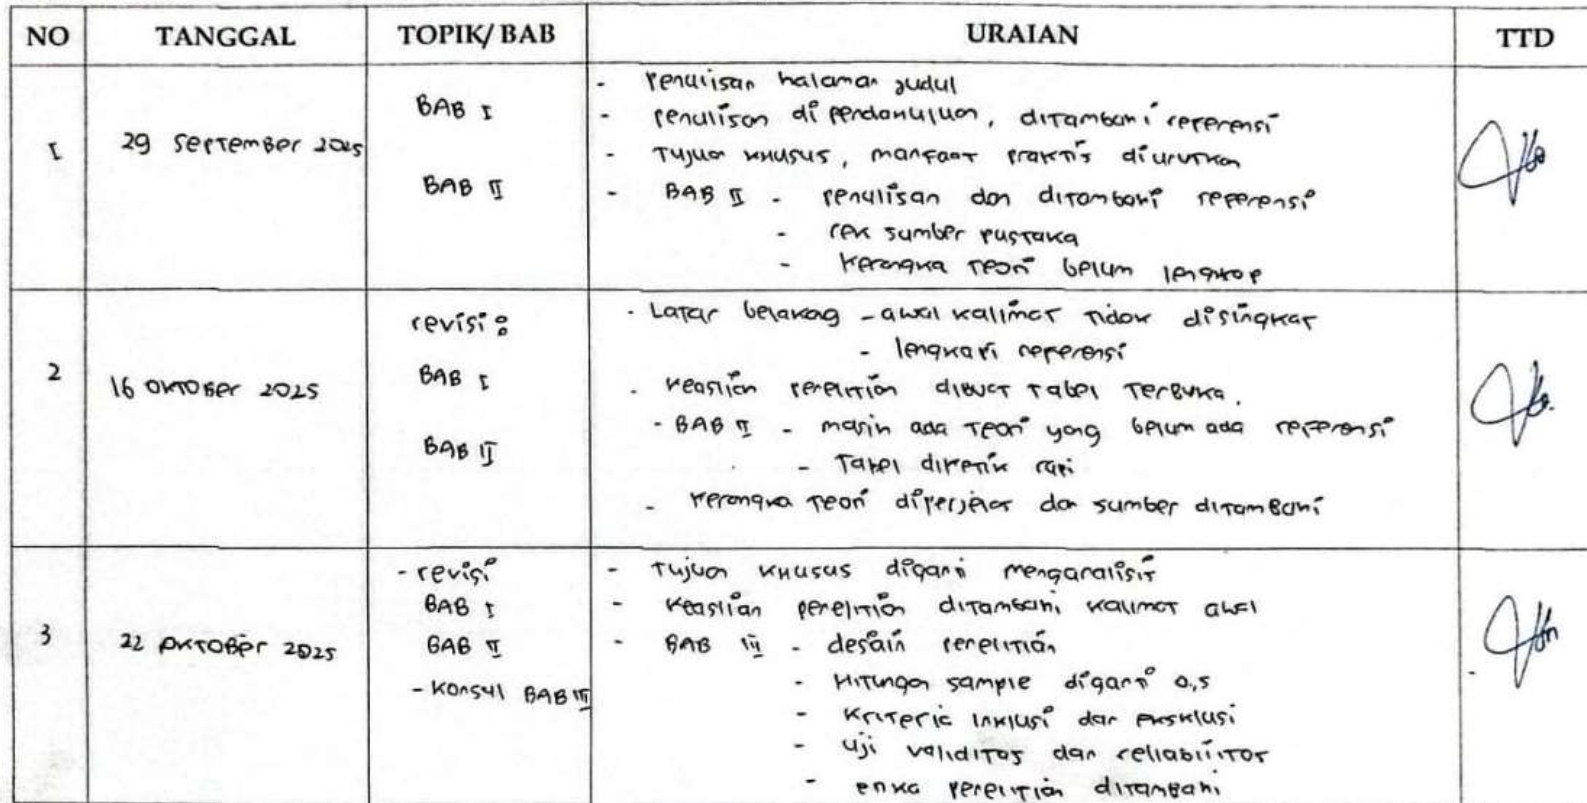 NO TANGGAL TOPIK/ BAB URAIAN TTD
1
29 September 2025
BAB I
BAB II
- Penulisan halaman judul
- penulisan di pendahuluan, ditambahi referensi
- Tujuan khusus, manfaat praktis diurutkan
- BAB II - penulisan dan ditambahi referensi
- cek sumber pustaka
- kerangka teori belum lengkap
2
16 Oktober 2025
revisi :
BAB I
BAB II
- Latar belakang - awal kalimat tidak disingkat
- lengkapi referensi
- keaslian penelitian dibuat tabel terbuka.
- BAB II - masih ada teori yang belum ada referensi
- Tabel diketik rapi
- kerangka teori diperjelas dan sumber ditambahi
3
22 Oktober 2025
- revisi
BAB I
BAB II
- Konsul BAB III
- Tujuan khusus diganti menganalisis
- keaslian penelitian ditambahi kalimat awal
- BAB III - desain penelitian
- Hitungan sample diganti 0,5
- Kriteria inklusi dan eksklusi
- uji validitas dan reliabilitas
- etika penelitian ditambahi